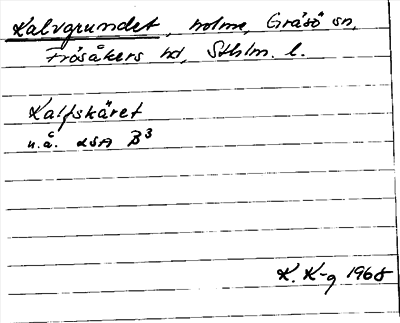 Kalvgrundet, holme, Gräsö sn,
Frösåkers hd, Sthlm. l.
Kalfskäret
u.å. LSA B3
K. K-g 1968